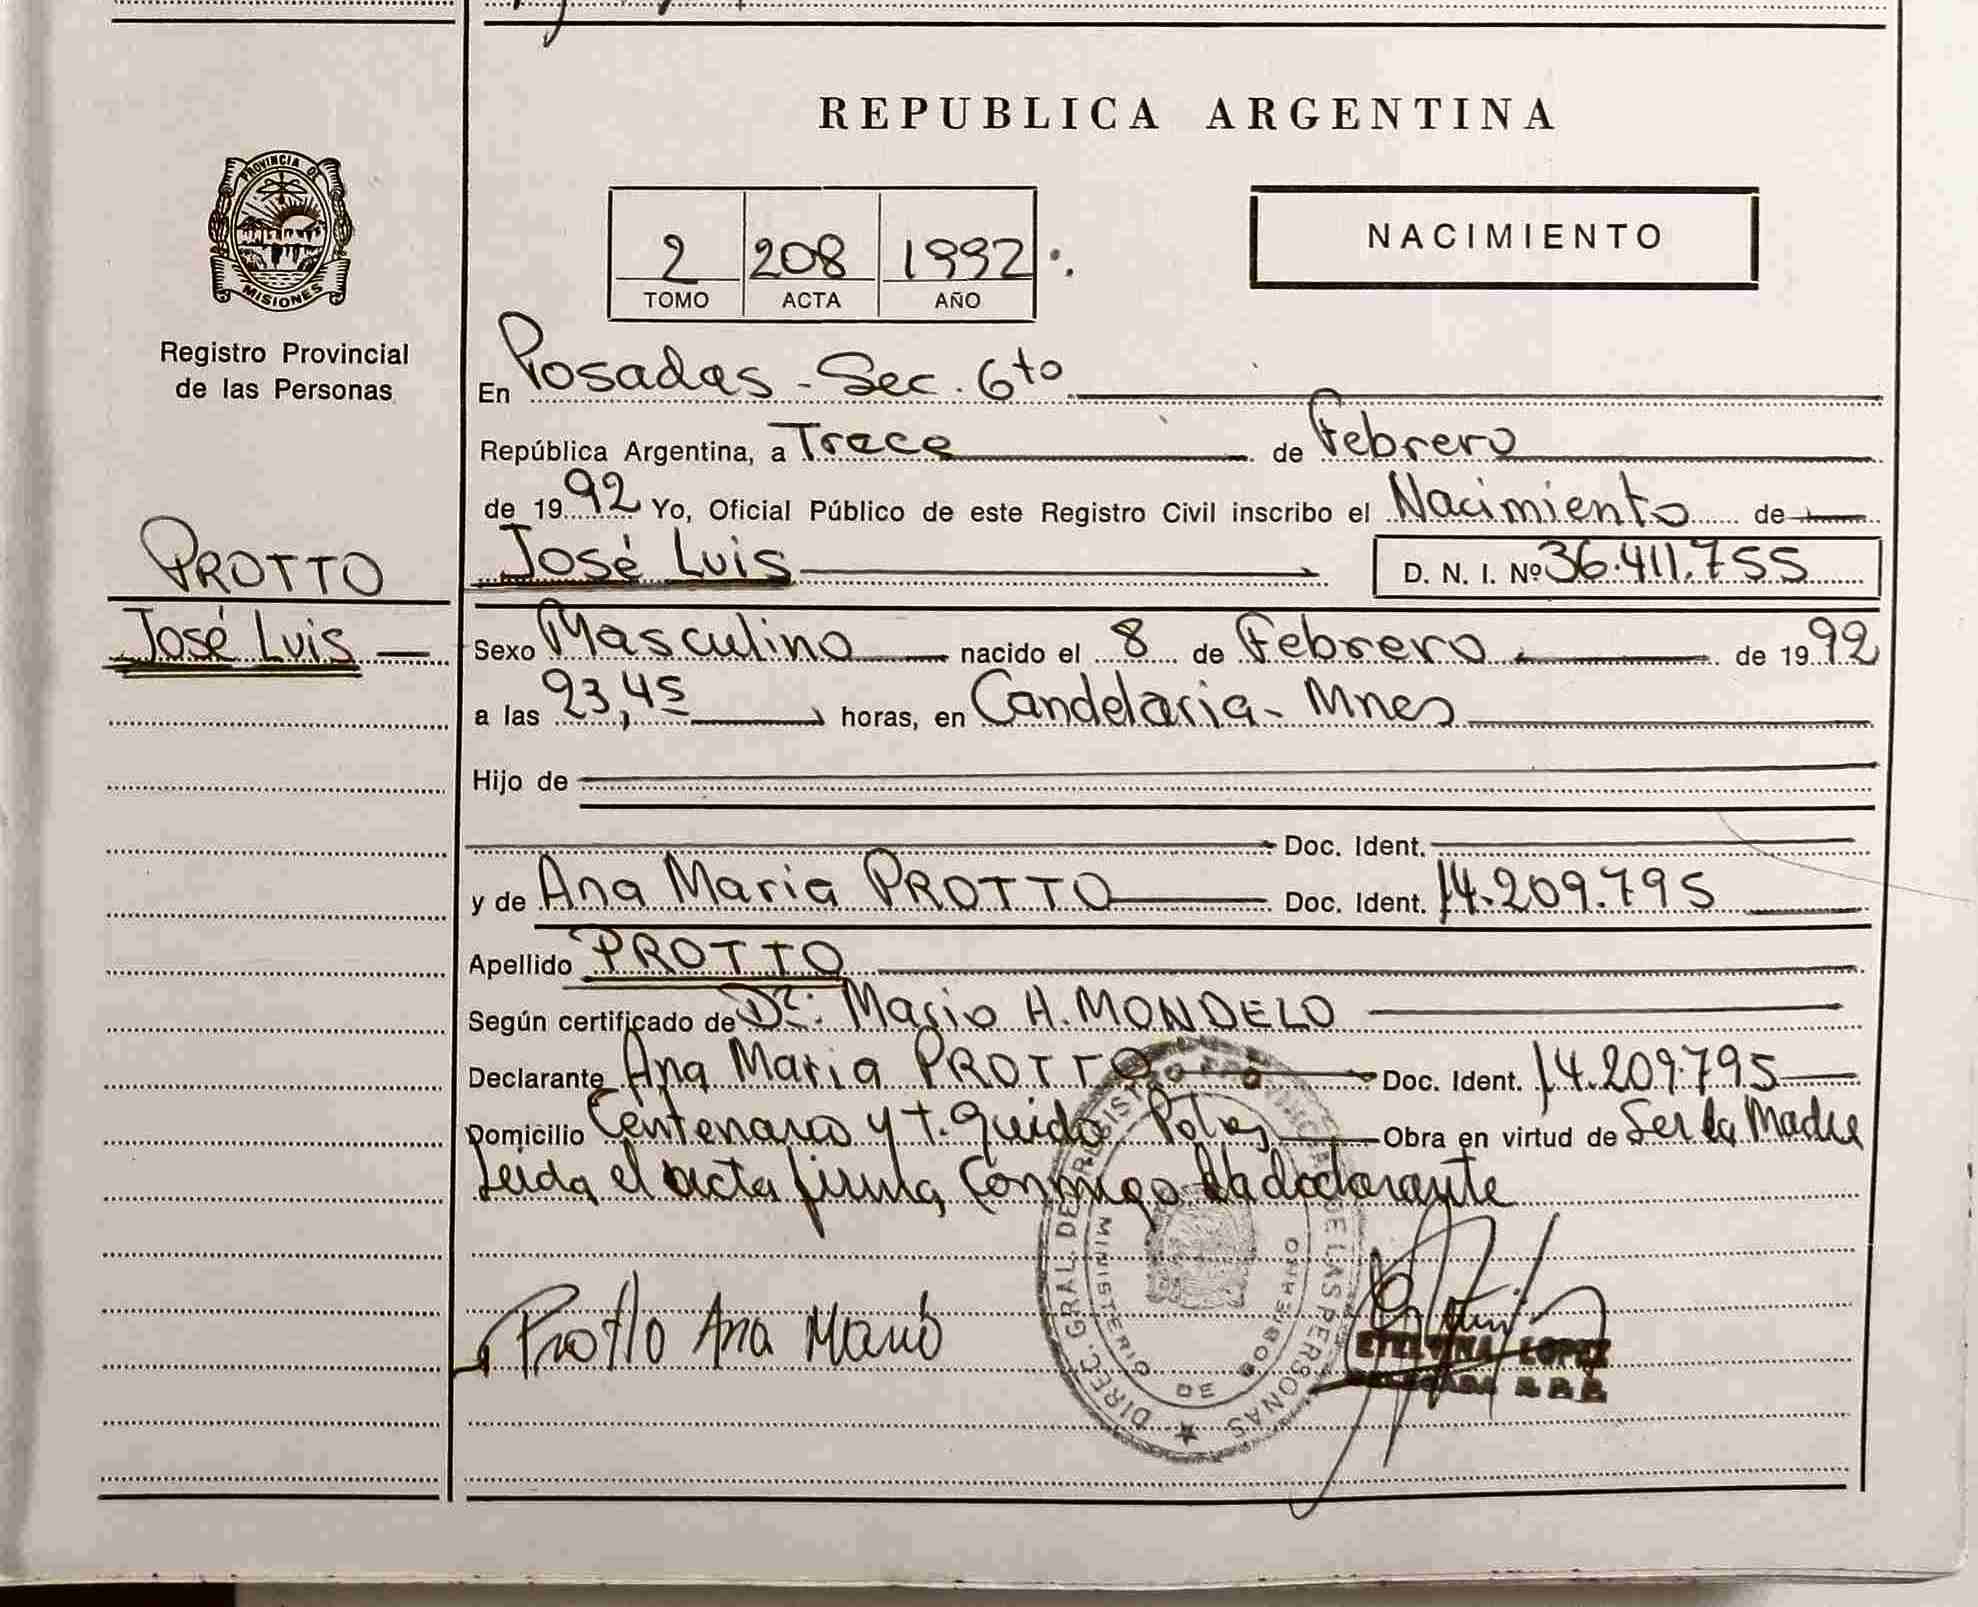 REPUBLICA ARGENTINA
PROVINCIA DE
MISIONES
Registro Provincial
de las Personas
2 208 1992
TOMO ACTA AÑO
NACIMIENTO
En Posadas - Sec. 6to
República Argentina, a Trece de Febrero
de 1992 Yo, Oficial Público de este Registro Civil inscribo el Nacimiento de
PROTTO
José Luis
José Luis D. N. I. Nº 36.411.755
Sexo Masculino nacido el 8 de Febrero de 1992
a las 23,45 horas, en Candelaria - Mnes
Hijo de
Doc. Ident.
y de Ana Maria PROTTO Doc. Ident. 14.209.795
Apellido PROTTO
Según certificado de Dr: Mario H. MONDELO
Declarante Ana Maria PROTTO Doc. Ident. 14.209.795
Domicilio Centenario y t. Guido Obra en virtud de Ser la Madre
Leida el acta firma conmigo la declarante
Protto Ana Maria
DIREC. GRAL. DE REGISTRO PROVINCIAL DE LAS PERSONAS
MINISTERIO DE GOBIERNO
ETELVINA LOPEZ
DELEGADA R.P.P.